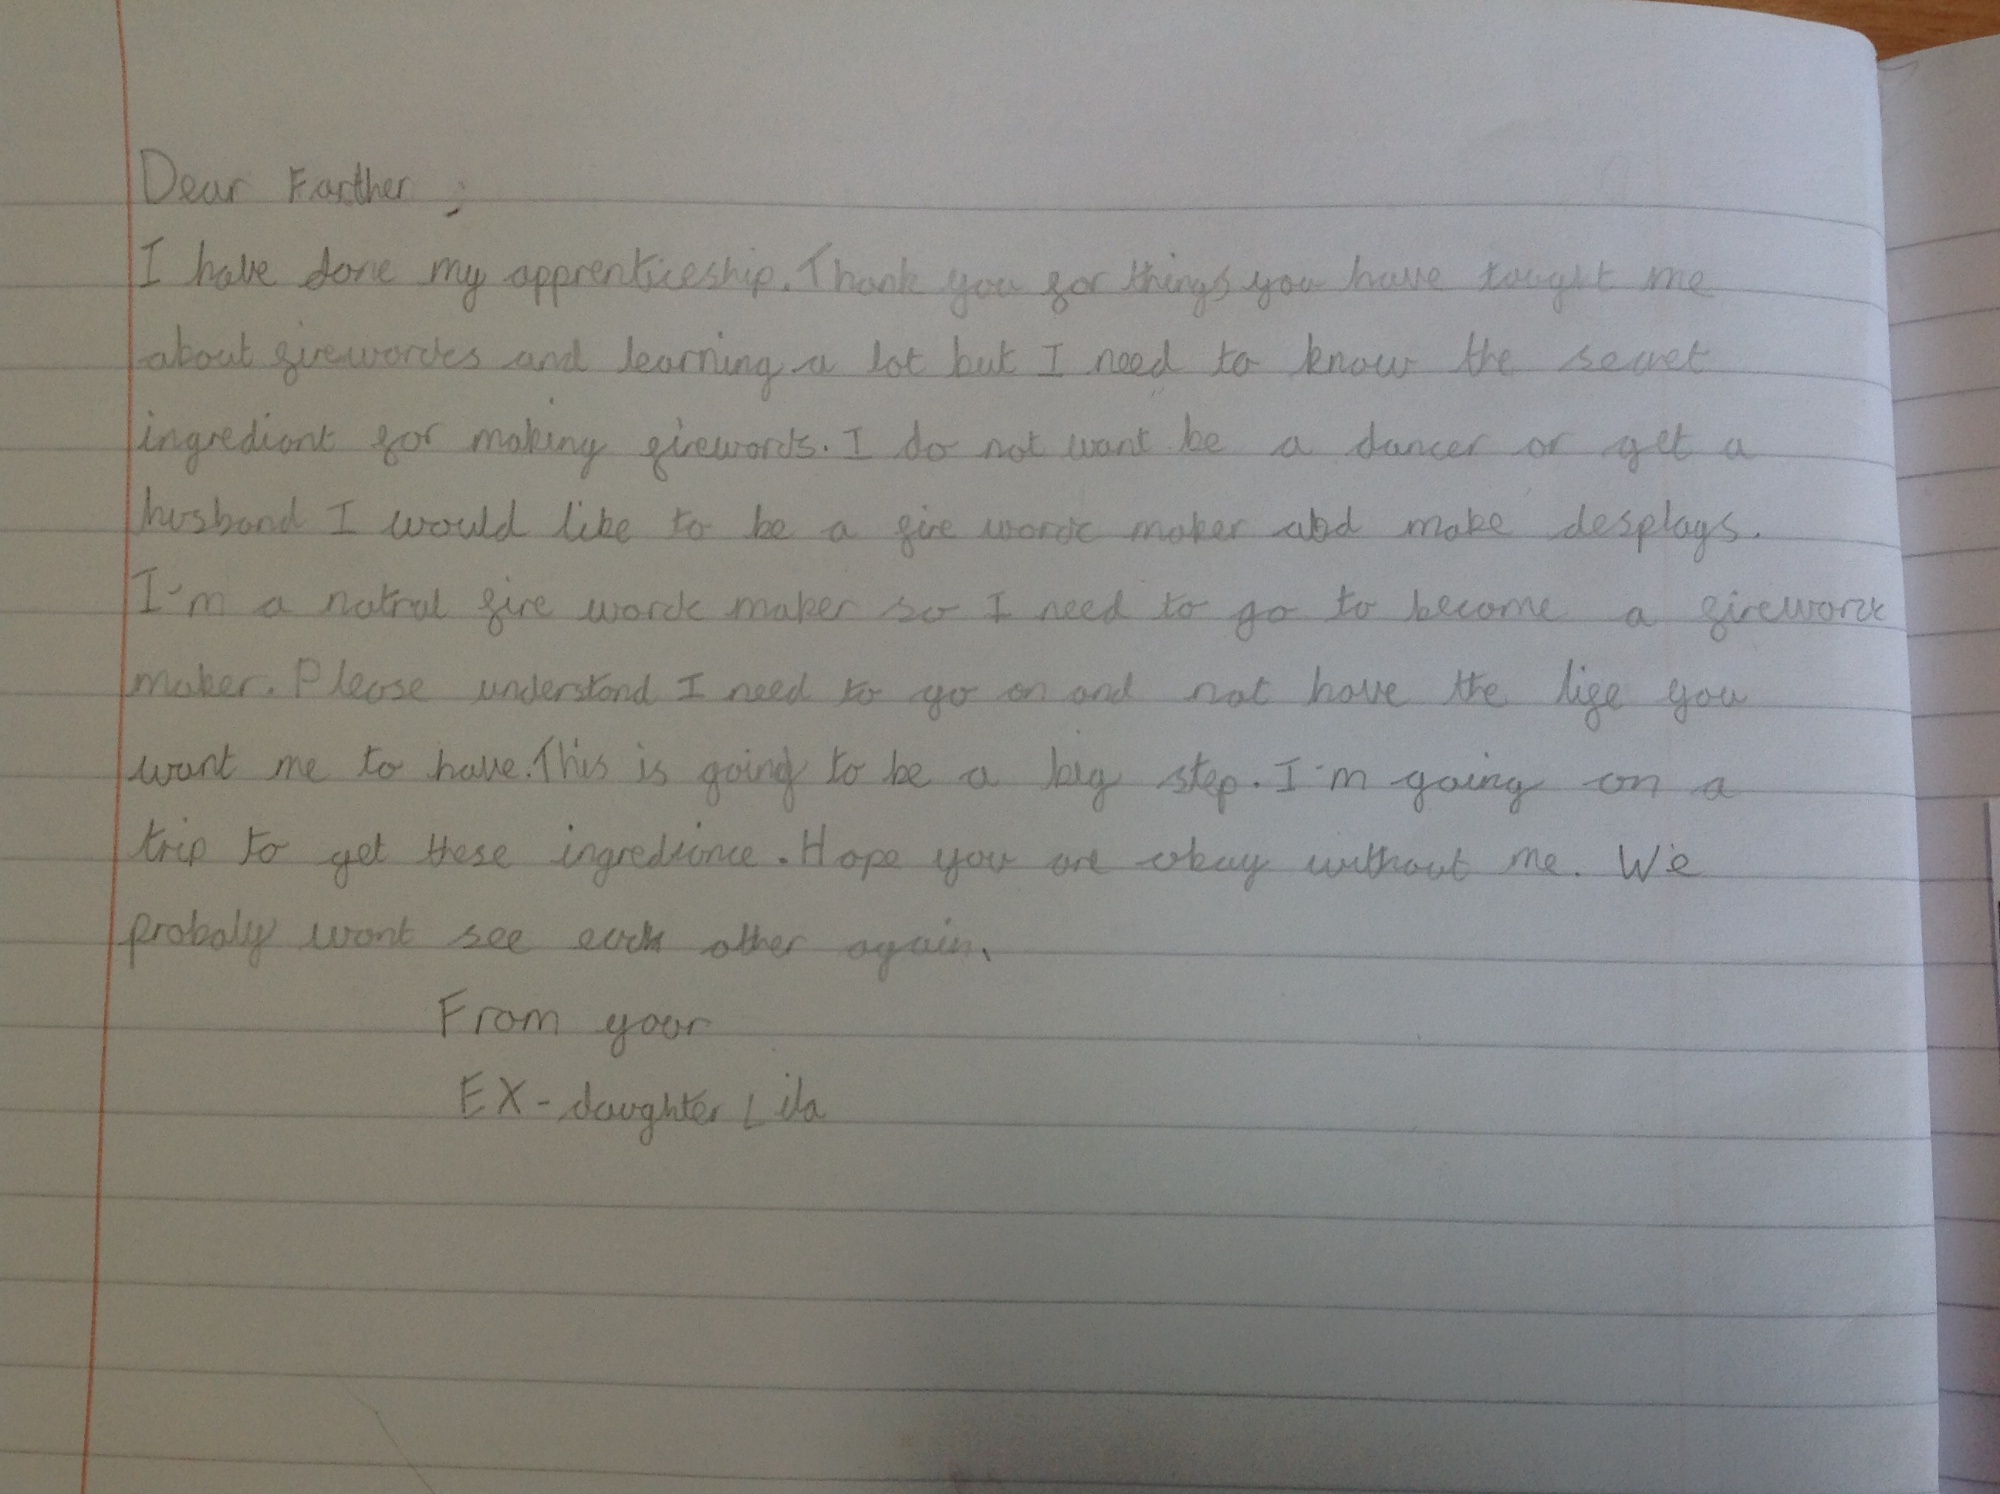 Dear Farther,
I have done my apprenticeship. Thank you for things you have tought me
about firewordes and learning a lot but I need to know the secret
ingrediant for making firewords. I do not want be a dancer or get a
husband I would like to be a fire worck maker abd make desplays.
I'm a natral fire worck maker so I need to go to become a firework
maker. Please understand I need to go on and not have the life you
want me to have. This is going to be a big step. I'm going on a
trip to get these ingredience. Hope you are okay without me. We
probaly wont see each other again.
From your
EX-daughter Lila